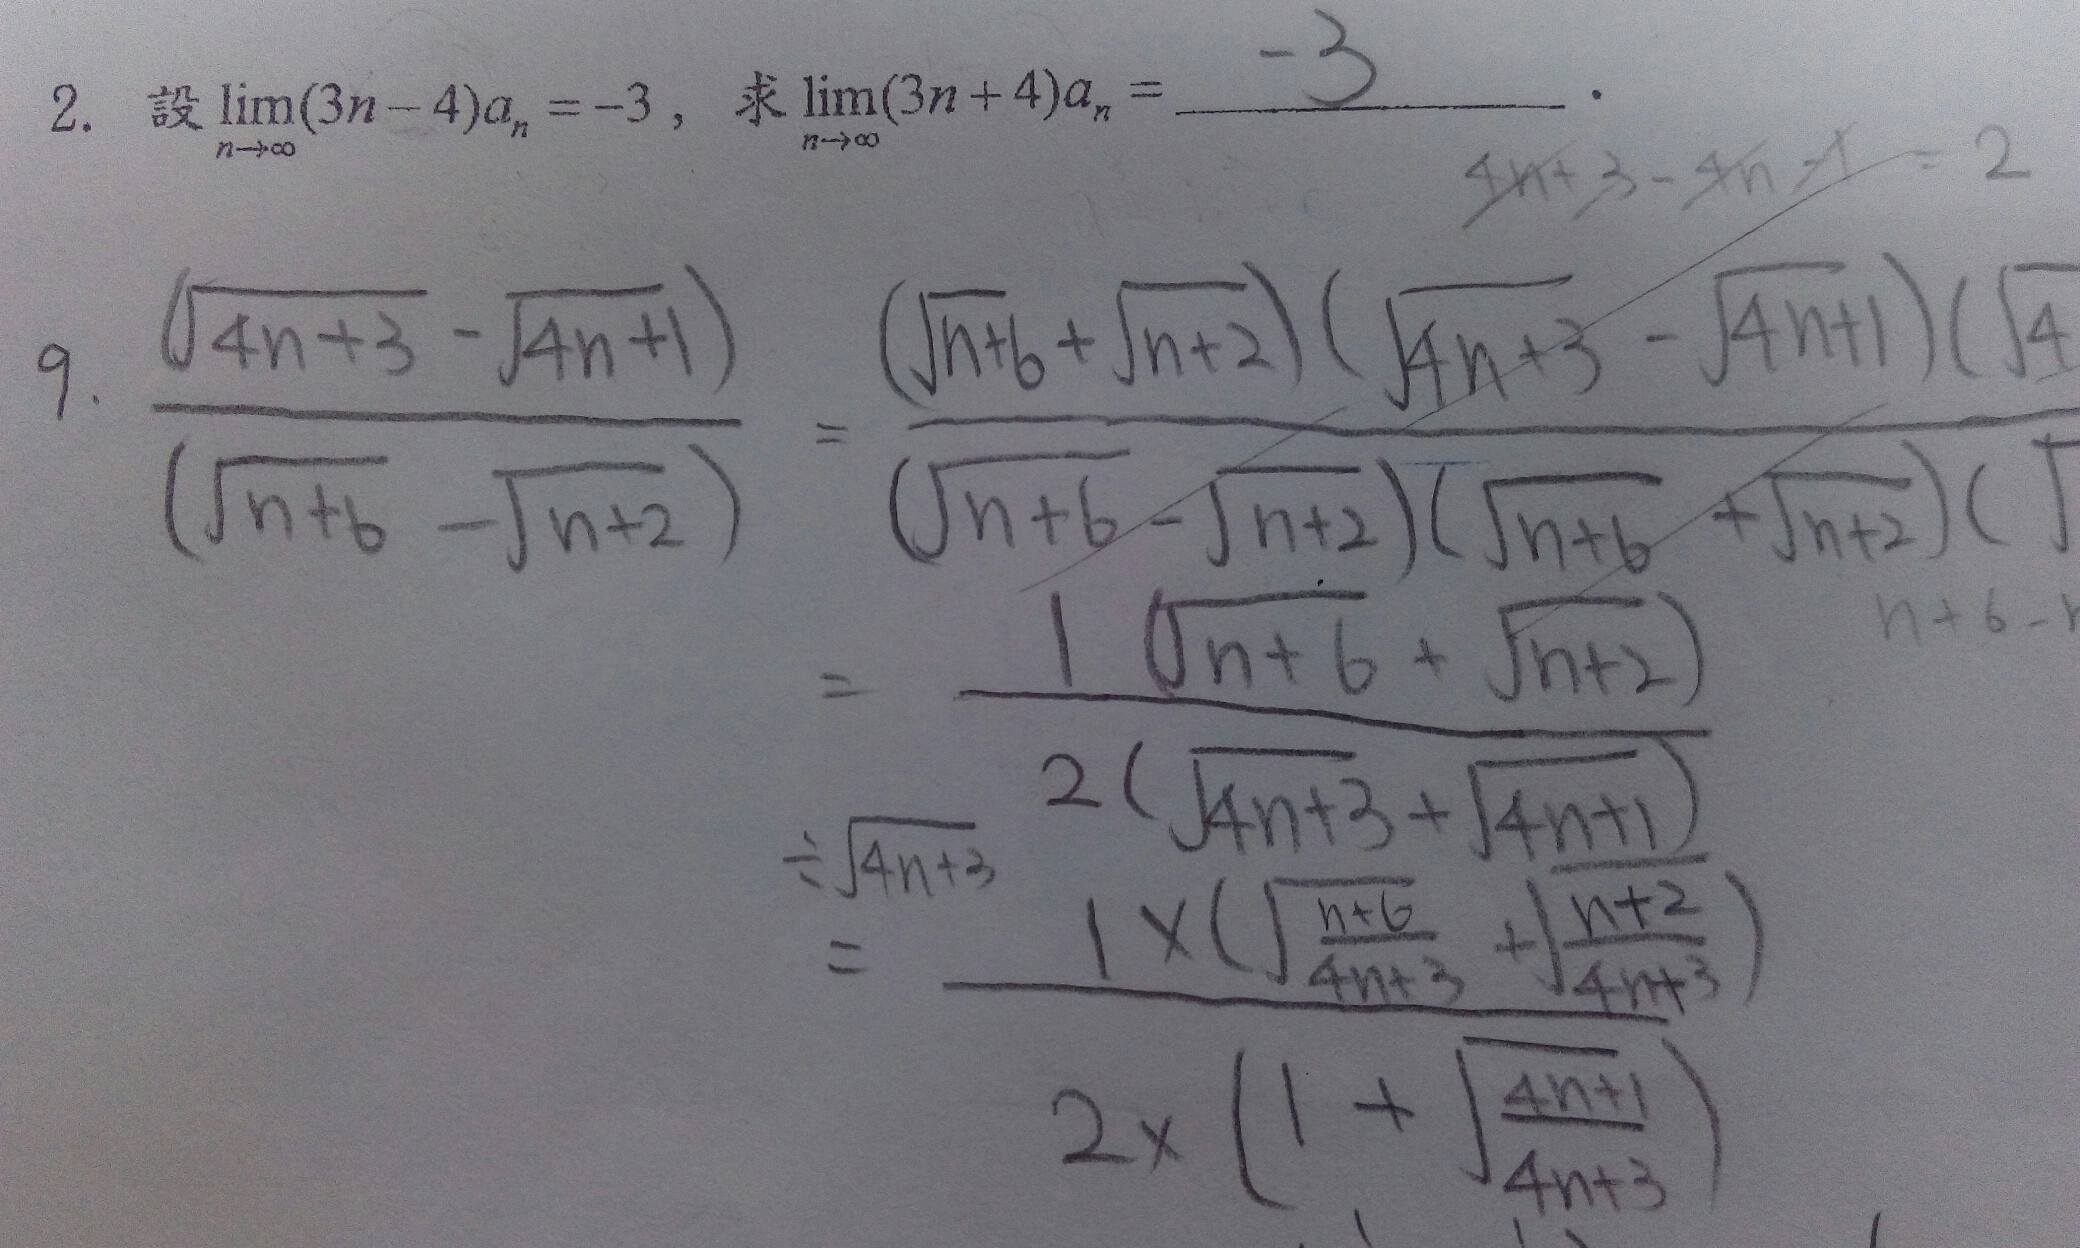 2. 設 lim(3n-4)aₙ = -3, 求 lim(3n+4)aₙ = -3 .
n→∞ n→∞
4n+3-4n-1 = 2
9. (√(4n+3) - √(4n+1)) / (√(n+6) - √(n+2)) = (√(n+6) + √(n+2))(√(4n+3) - √(4n+1))(√4 / (√(n+6) - √(n+2))(√(n+6) + √(n+2))(√
n+6-n
= 1 (√(n+6) + √(n+2)) / 2(√(4n+3) + √(4n+1))
÷√(4n+3)
= 1×(√((n+6)/(4n+3)) + √((n+2)/(4n+3))) / 2×(1 + √((4n+1)/(4n+3)))